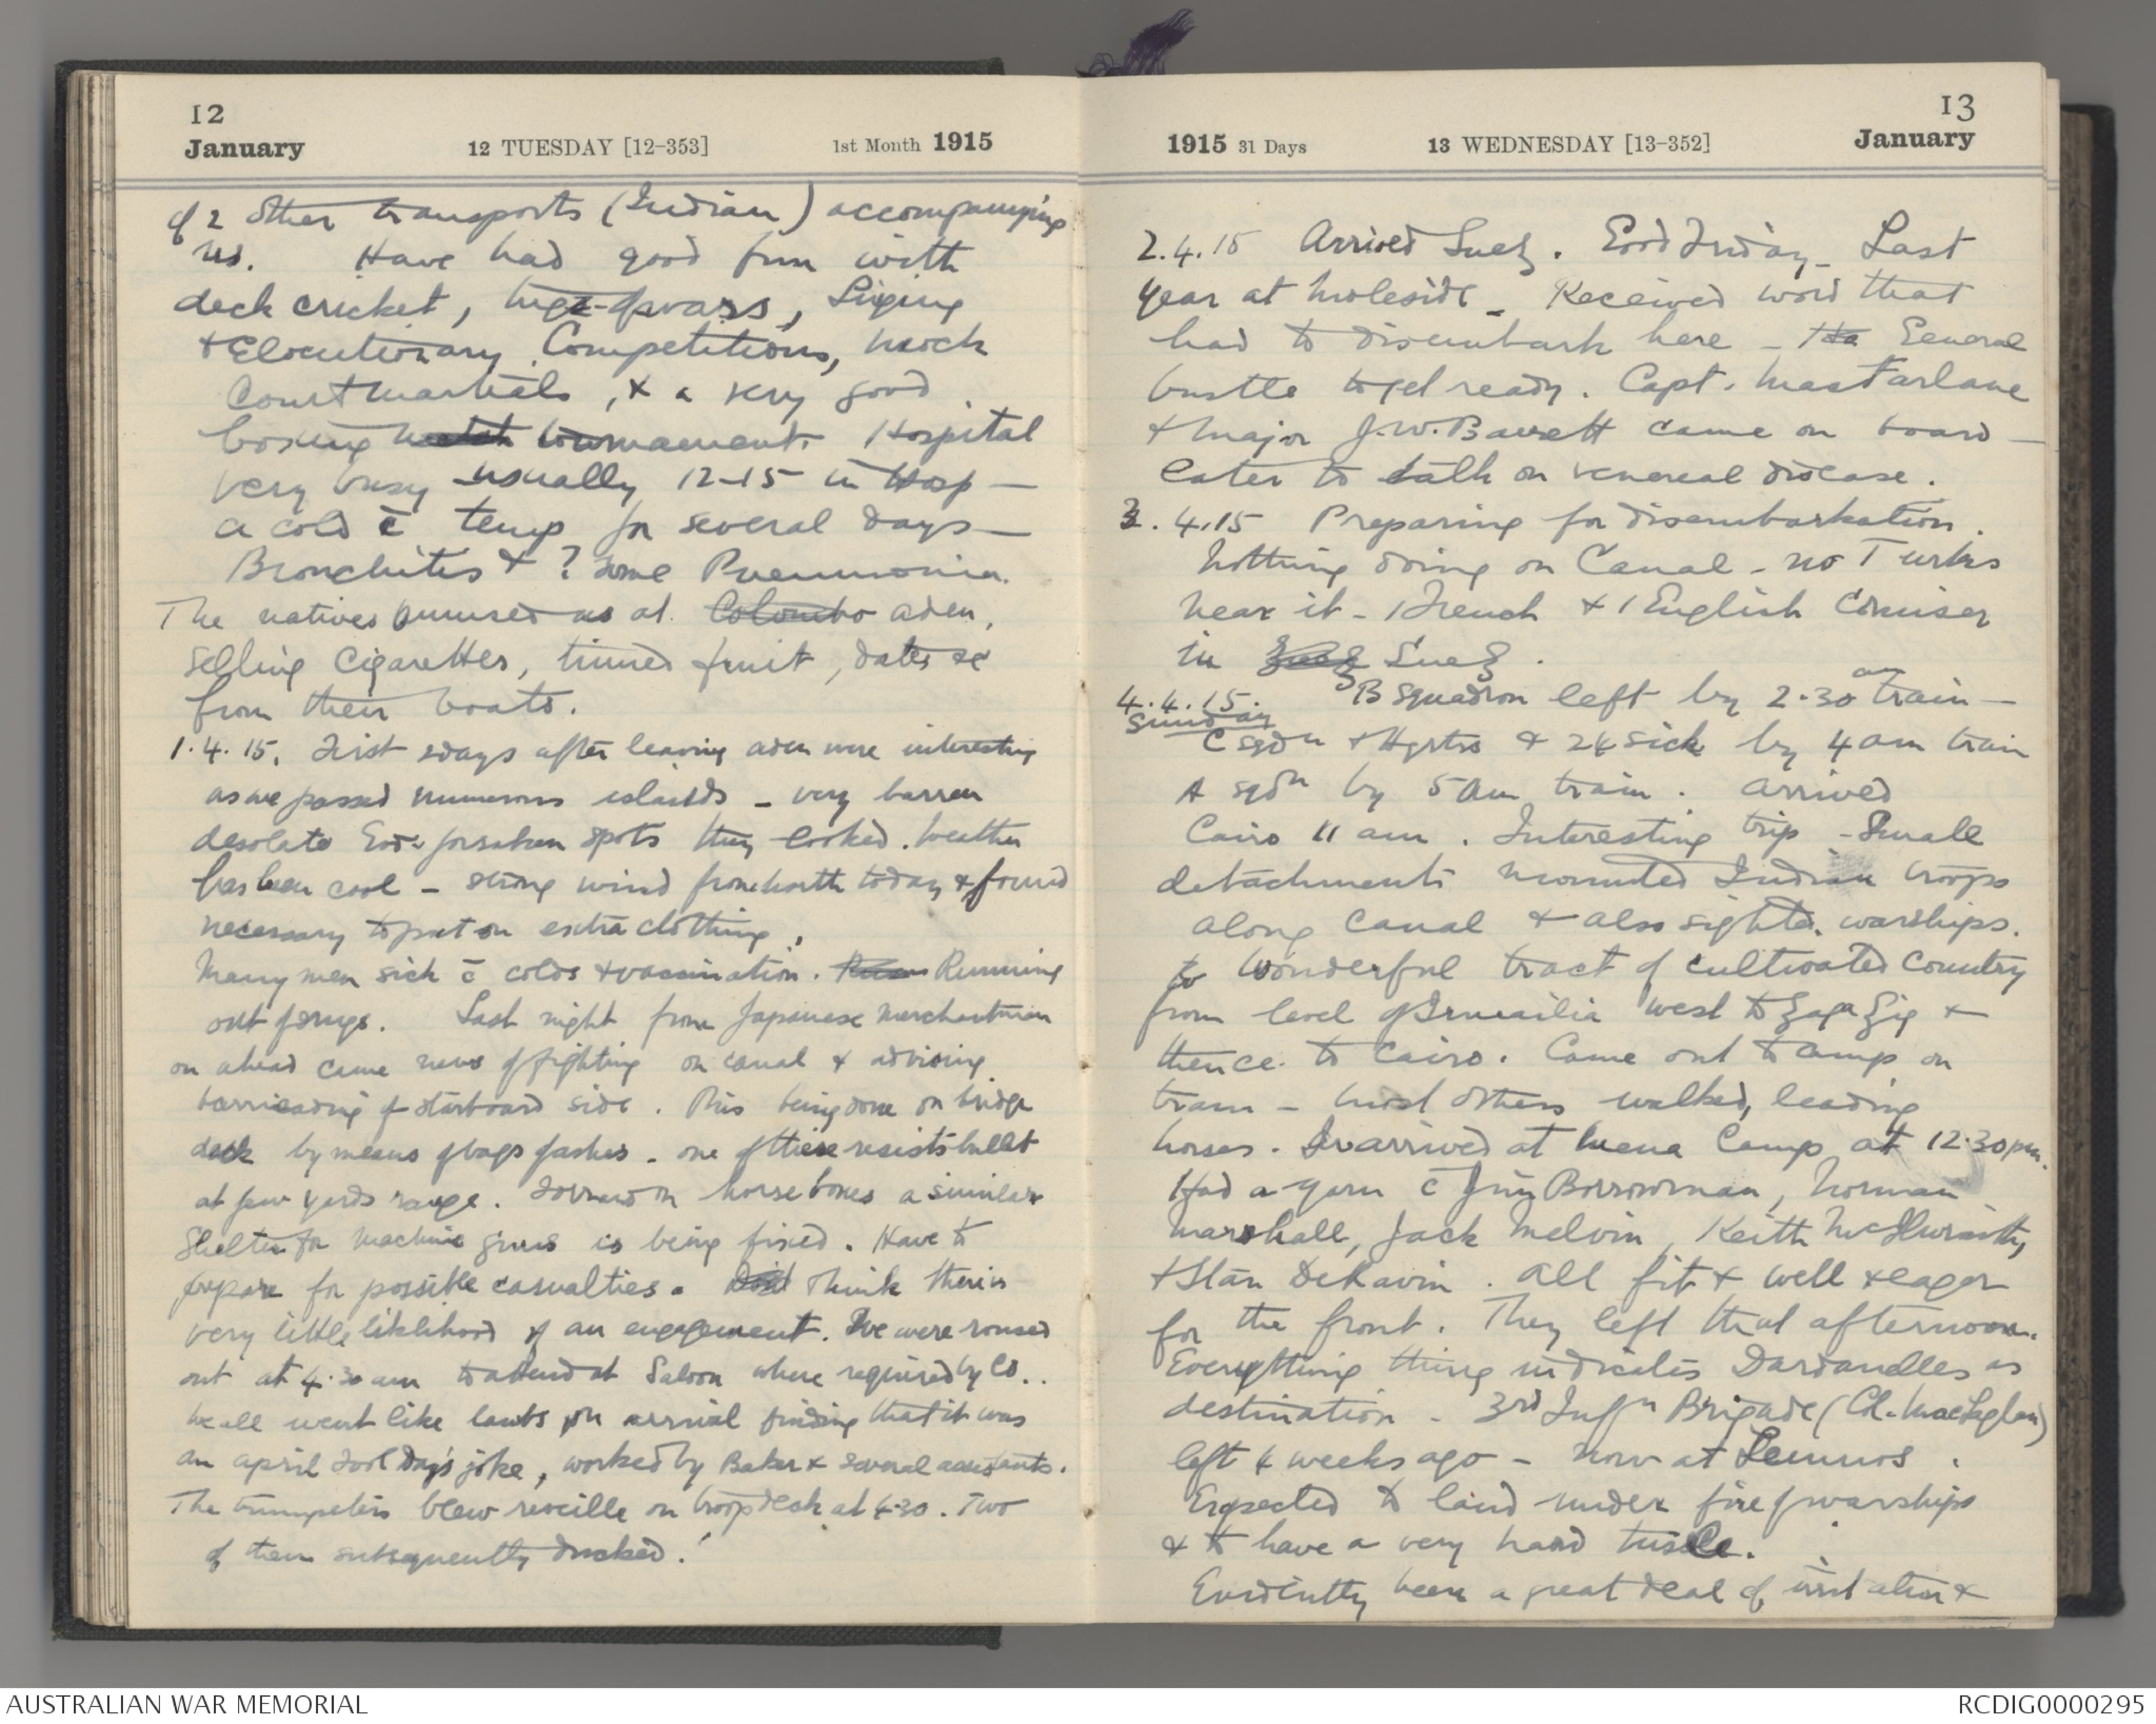 12
January 12 TUESDAY [12-353] 1st Month 1915
of 2 other transports (Indian) accompanying
us. Have had good fun with
deck cricket, tugs-of-wars, Singing
& Elocutionary Competitions, mock
Court Martials, & a very good
boxing match tournament. Hospital
very busy usually 12-15 in Hosp –
a cold c̄ temp for several days –
Bronchitis & ? some Pneumonia.
The natives amused us at Colombo aden,
selling cigarettes, tinned fruit, dates &c
from their boats.
1.4.15. First 2 days after leaving aden were interesting
as we passed numerous islands – very barren
desolate God-forsaken spots they looked. Weather
has been cool – strong wind from north today & found
necessary to put on extra clothing,
Many men sick c̄ colds & vaccination. Running
out of drugs. Last night from Japanese merchantman
on ahead came news of fighting on canal & advising
barricading of starboard side. This being done on bridge
deck by means of bags of ashes – one of these resists bullet
at few yards range. Forward on horse boxes a similar
Shelter for machine guns is being fixed. Have to
prepare for possible casualties. Think there is
very little liklihood of an engagement. We were roused
out at 4.30 am to attend at Saloon where required by CO..
We all went like lambs on arrival finding that it was
an april Fool Day's joke, worked by Baker & several assistants.
The trumpeters blew reveille on troop deck at 4.30. Two
of them subsequently ducked.!
13
1915 31 Days 13 WEDNESDAY [13-352] January
2.4.15 Arrived Suez. Good Friday – Last
year at Moleside – Received word that
had to disembark here – General
bustle to get ready. Capt. MacFarlane
& Major J.W. Barrett came on board –
later to talk on venereal disease.
3.4.15 Preparing for disembarkation.
Nothing doing on Canal – no Turks
near it – 1 French & 1 English Cruiser
in Suez Suez.
4.4.15. B Squadron left by 2.30 am train –
Sunday
C sqdn & Hqrtrs & 24 sick by 4 am train
A sqdn by 5 am train. Arrived
Cairo 11 am. Interesting trip – Small
detachments mounted Indian troops
along Canal & also sighted warships.
to Wonderful tract of cultivated country
from level of Ismailia west to Zaga Zig &
thence to Cairo. Came out to camp on
tram – most others walked, leading
horses. arrived at Mena Camp at 12.30 pm.
Had a yarn c̄ Jim Borrowman, Norman
Marshall, Jack Melvin, Keith McIlwraith,
& Stan DeRavin. All fit & well & eager
for the front. They left that afternoon.
Everything thing indicates Dardanelles as
destination – 3rd Inffn Brigade (Col. MacLaglan)
left 4 weeks ago – now at Lemnos.
Expected to land under fire of warships
& to have a very hard tussle.
Evidently been a great deal of irritation &
AUSTRALIAN WAR MEMORIAL RCDIG0000295